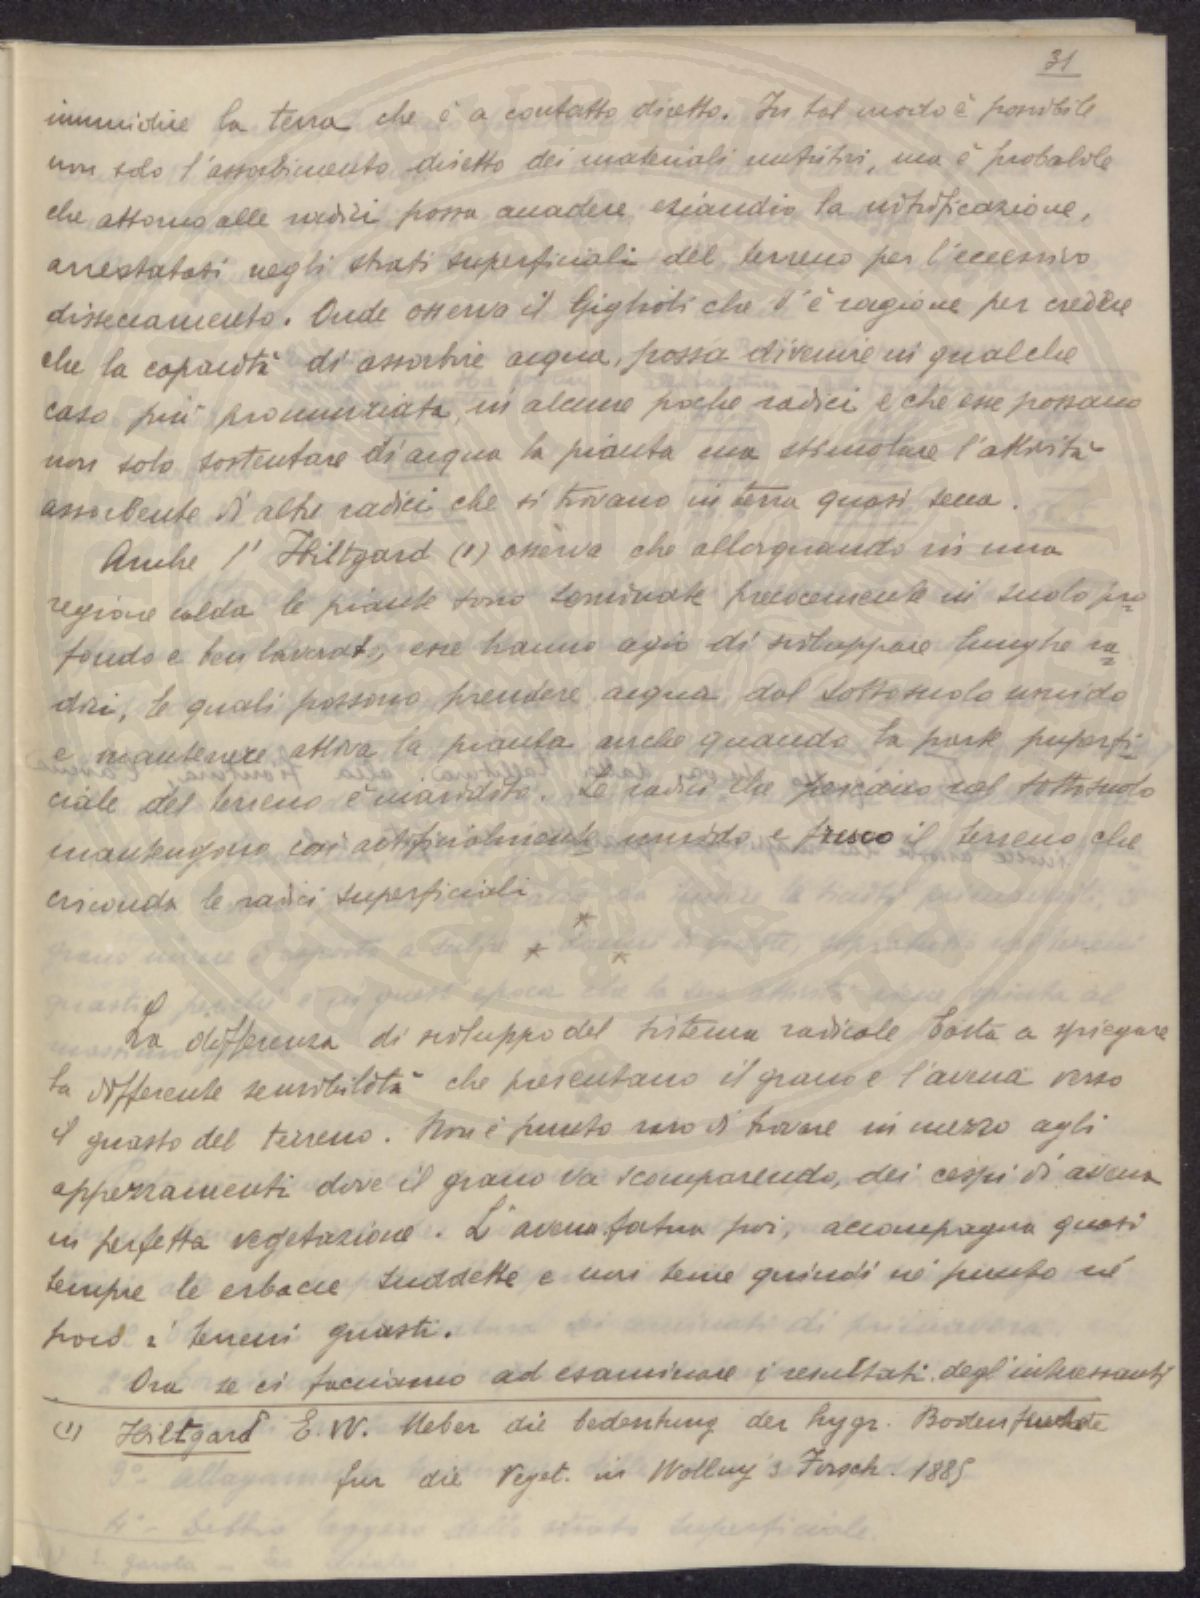 31
inumidire la terra che è a contatto diretto. In tal modo è possibile
non solo l'assorbimento diretto dei materiali nutritivi, ma è probabile
che attorno alle radici possa accadere eziandio la nitrificazione,
arrestatasi negli strati superficiali del terreno per l'eccessivo
disseccamento. Onde osserva il Giglioli che v'è ragione per credere
che la capacità di assorbire acqua, possa divenire in qualche
caso più pronunziata, in alcune poche radici e che esse possano
non solo sostentare di acqua la pianta ma stimolare l'attività
assorbente di altre radici che si trovano in terra quasi secca.
Anche l'Hiltgard (1) osserva che allorquando in una
regione calda le piante sono seminate precocemente in suolo pro=
fondo e ben lavorato, esse hanno agio di sviluppare lunghe ra=
dici, le quali possono prendere acqua dal sottosuolo umido
e mantenere attiva la pianta anche quando la parte superfi=
ciale del terreno è inaridita. Le radici che pescano nel sottosuolo
mantengono così artificialmente umido e fresco il terreno che
circonda le radici superficiali
* * *
La differenza di sviluppo del sistema radicale basta a spiegare
la differente sensibilità che presentano il grano e l'avena verso
il guasto del terreno. Non è punto raro di trovare in mezzo agli
appezzamenti dove il grano va scomparendo, dei cespi di avena
in perfetta vegetazione. L'avena fatua poi, accompagna quasi
sempre le erbacce suddette e non teme quindi né punto né
poco i terreni guasti.
Ora se ci facciamo ad esaminare i resultati degl'interessanti
(1) Hiltgard E. W. Ueber die bedentung der hygr. Bodenfeuchte
fur die Veget. in Wollny's Forsch. 1885